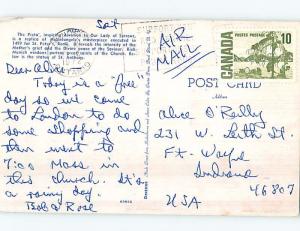 Sat
The "Pieta", imposing
is a replica of Michelangelo's masterpiece executed in
1499 for St. Peter's, Rome. It reveals the intensity of the
Mother's grief and the divine power of the Saviour.
Church
Service is the statue of St. Anthony.
Dear Alice
Today is a "free"
day so we came
to London to do
some shopping and
then went to
7:00 Mass in
this church. It's
a rainy day.
Bob & Rose
AIR
MAIL
POSTES POSTAGE
CANADA
10
POST CARD
Address
Alice O'Reilly
231 W.
Ft. Wayne
Indiana
46807
USA